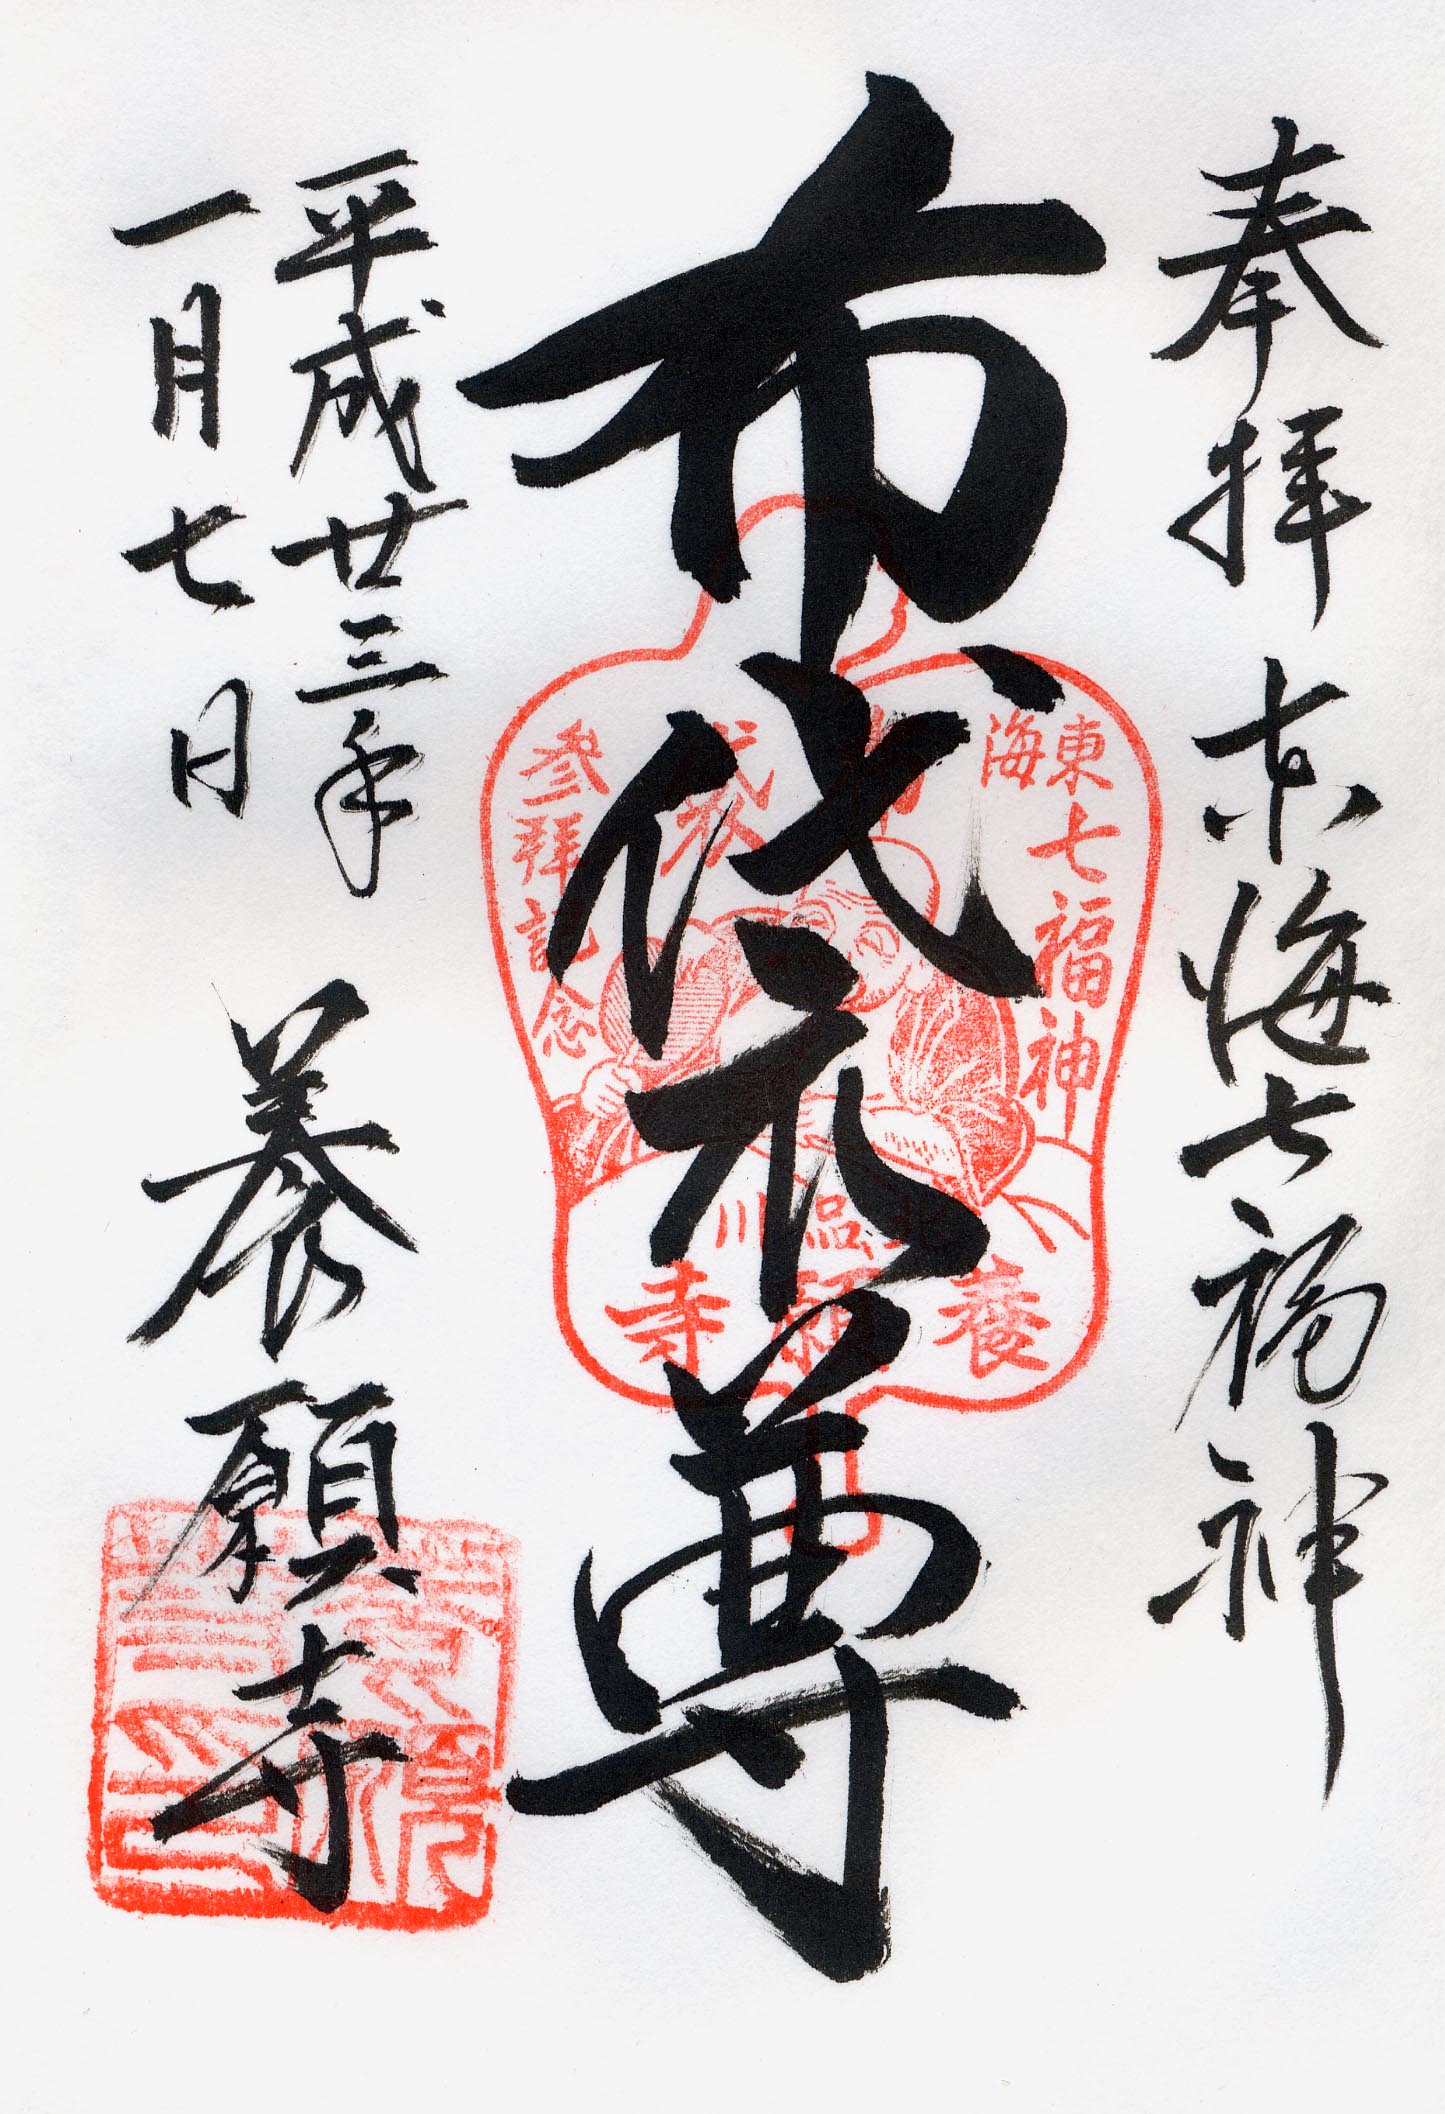 奉拝 東海七福神
布袋尊
平成廿三年
一月七日
養願寺
東海
七福神
布袋
参拝記念
北品川
養願寺